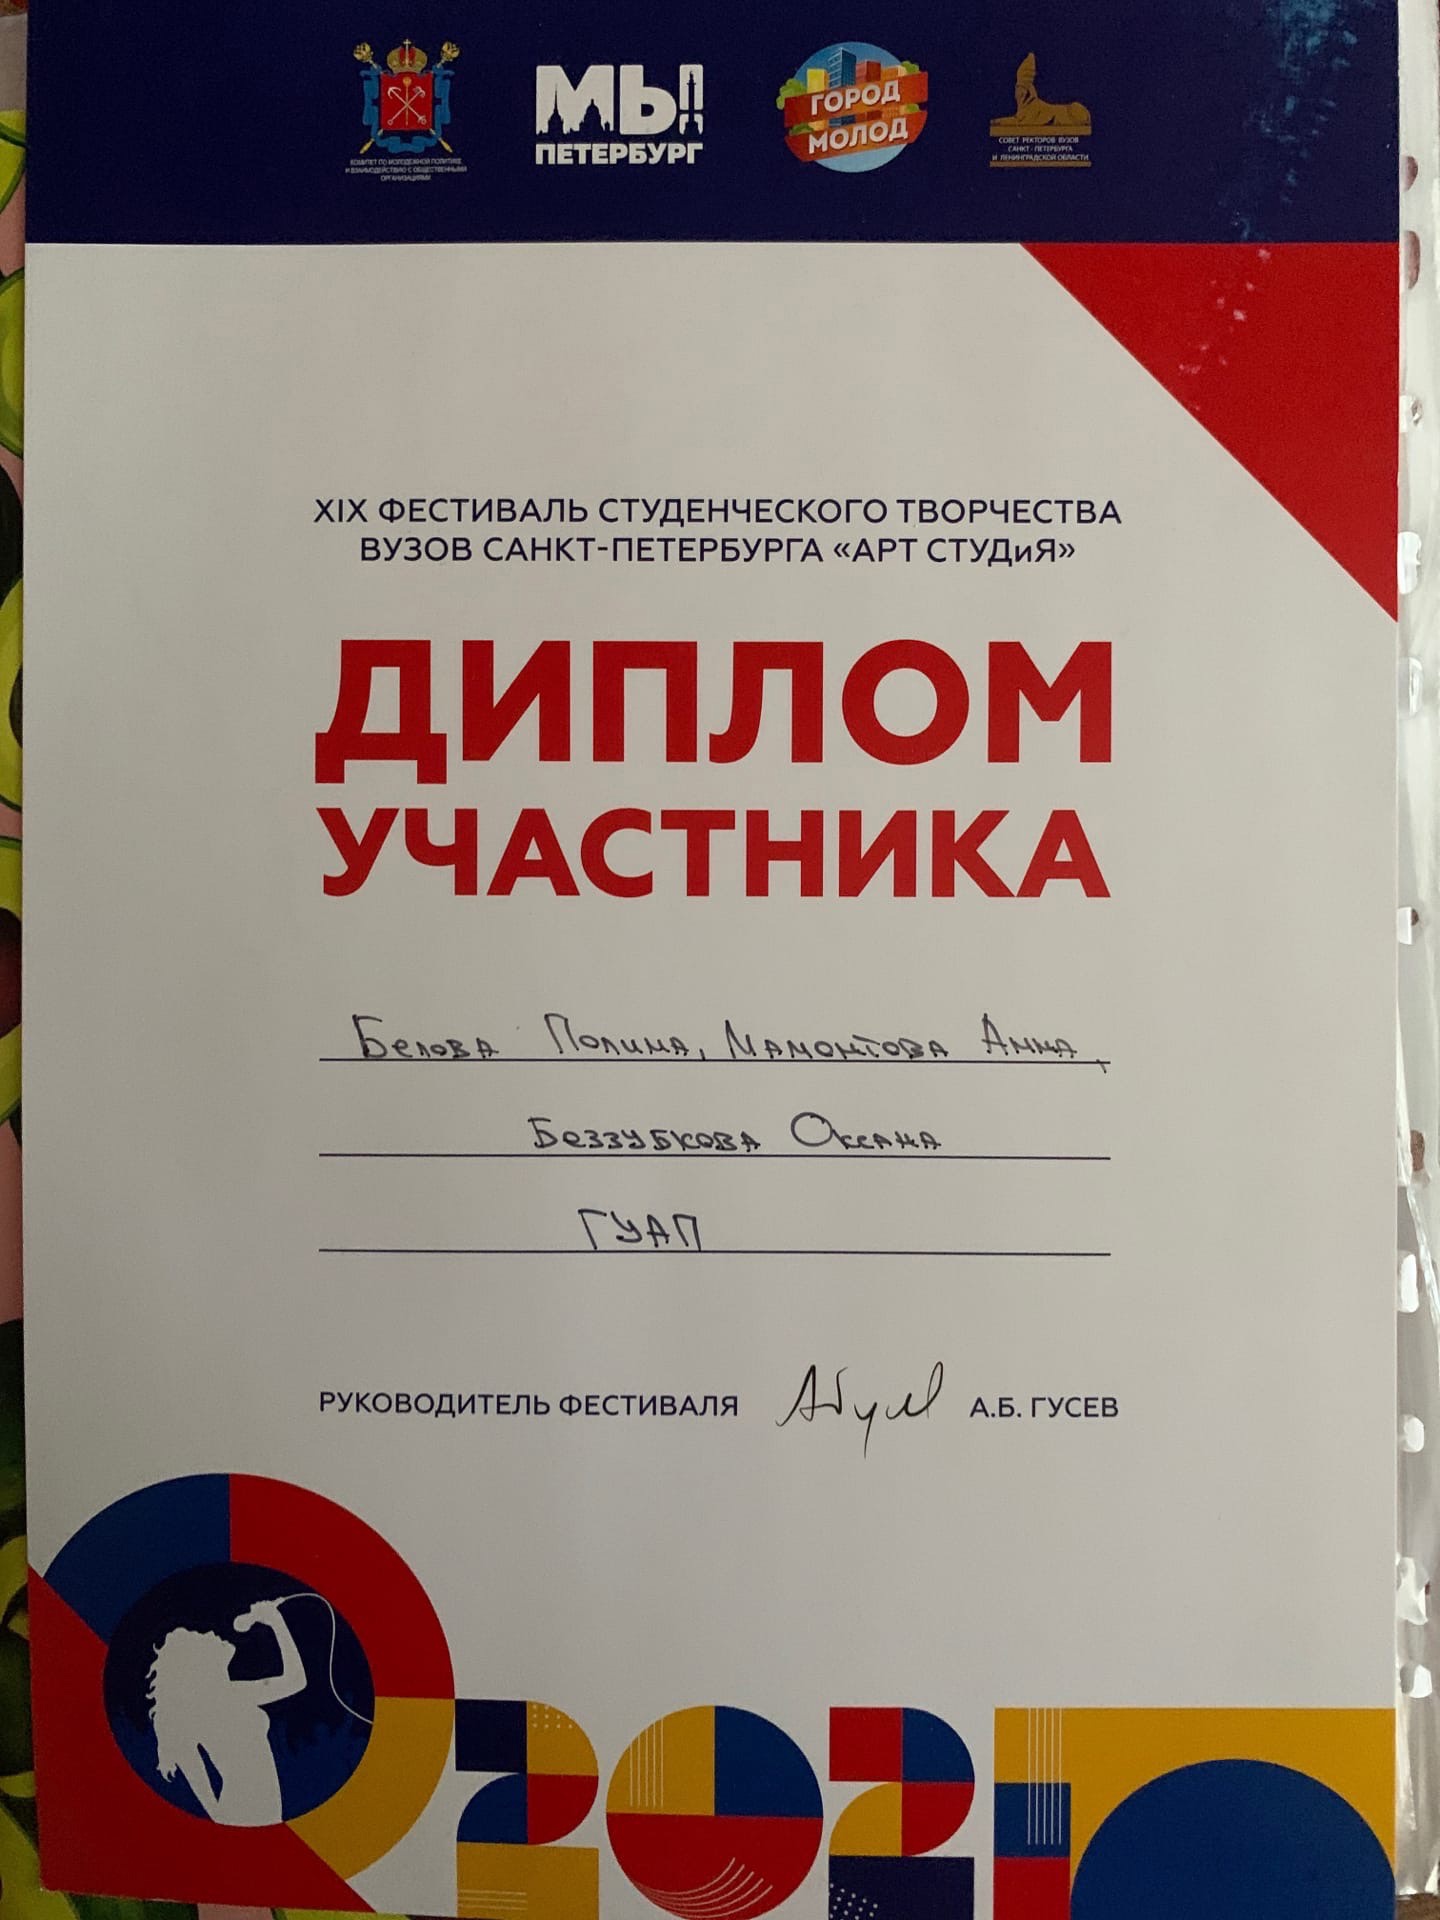 КОМИТЕТ ПО МОЛОДЕЖНОЙ ПОЛИТИКЕ
И ВЗАИМОДЕЙСТВИЮ С ОБЩЕСТВЕННЫМИ
ОРГАНИЗАЦИЯМИ
МЫ
ПЕТЕРБУРГ
ГОРОД
МОЛОД
СОВЕТ РЕКТОРОВ ВУЗОВ
САНКТ - ПЕТЕРБУРГА
И ЛЕНИНГРАДСКОЙ ОБЛАСТИ
XIX ФЕСТИВАЛЬ СТУДЕНЧЕСКОГО ТВОРЧЕСТВА
ВУЗОВ САНКТ-ПЕТЕРБУРГА «АРТ СТУДиЯ»
ДИПЛОМ
УЧАСТНИКА
Белова Полина, Мамонтова Анна,
Беззубкова Оксана
ГУАП
РУКОВОДИТЕЛЬ ФЕСТИВАЛЯ А.Б. ГУСЕВ
2021